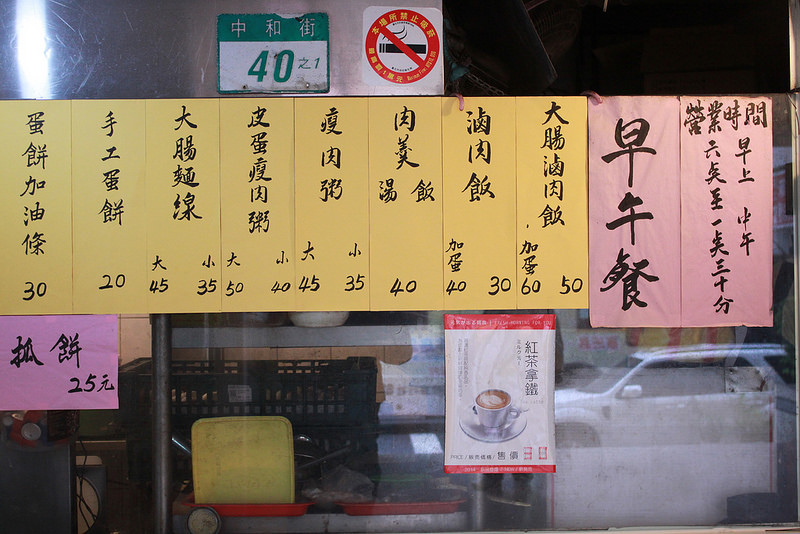 中和街
40之1
本場所禁止吸菸
早午餐
營業時間
早上 中午
六点至一点三十分
大腸滷肉飯
加蛋60 50
滷肉飯
加蛋40 30
肉羹飯
湯
40
瘦肉粥
大45 小35
皮蛋瘦肉粥
大50 小40
大腸麵線
大45 小35
手工蛋餅
20
蛋餅加油條
30
抓餅
25元
紅茶拿鐵
售價